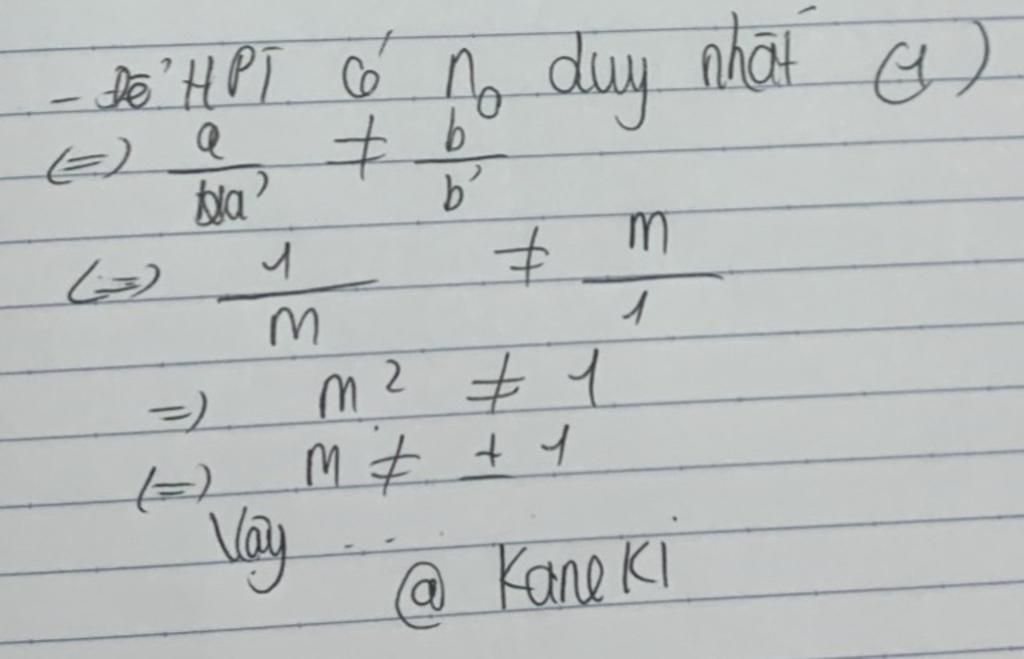 - Để HPT có n₀ duy nhất (1)
(=) a/a' ≠ b/b'
(=) 1/m ≠ m/1
=) m² ≠ 1
(=) m ≠ ± 1
Vậy ...
@ KaneKI